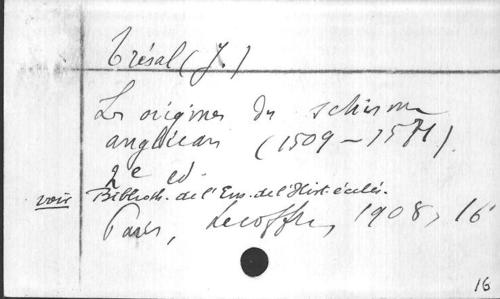 Trésal (J.)
Les origines du schisme
anglican (1509-1571).
2e ed.
voir Biblioth. de l'Ens. de l'Hist. ecclés.
Paris, Lecoffre, 1908, 16°
16